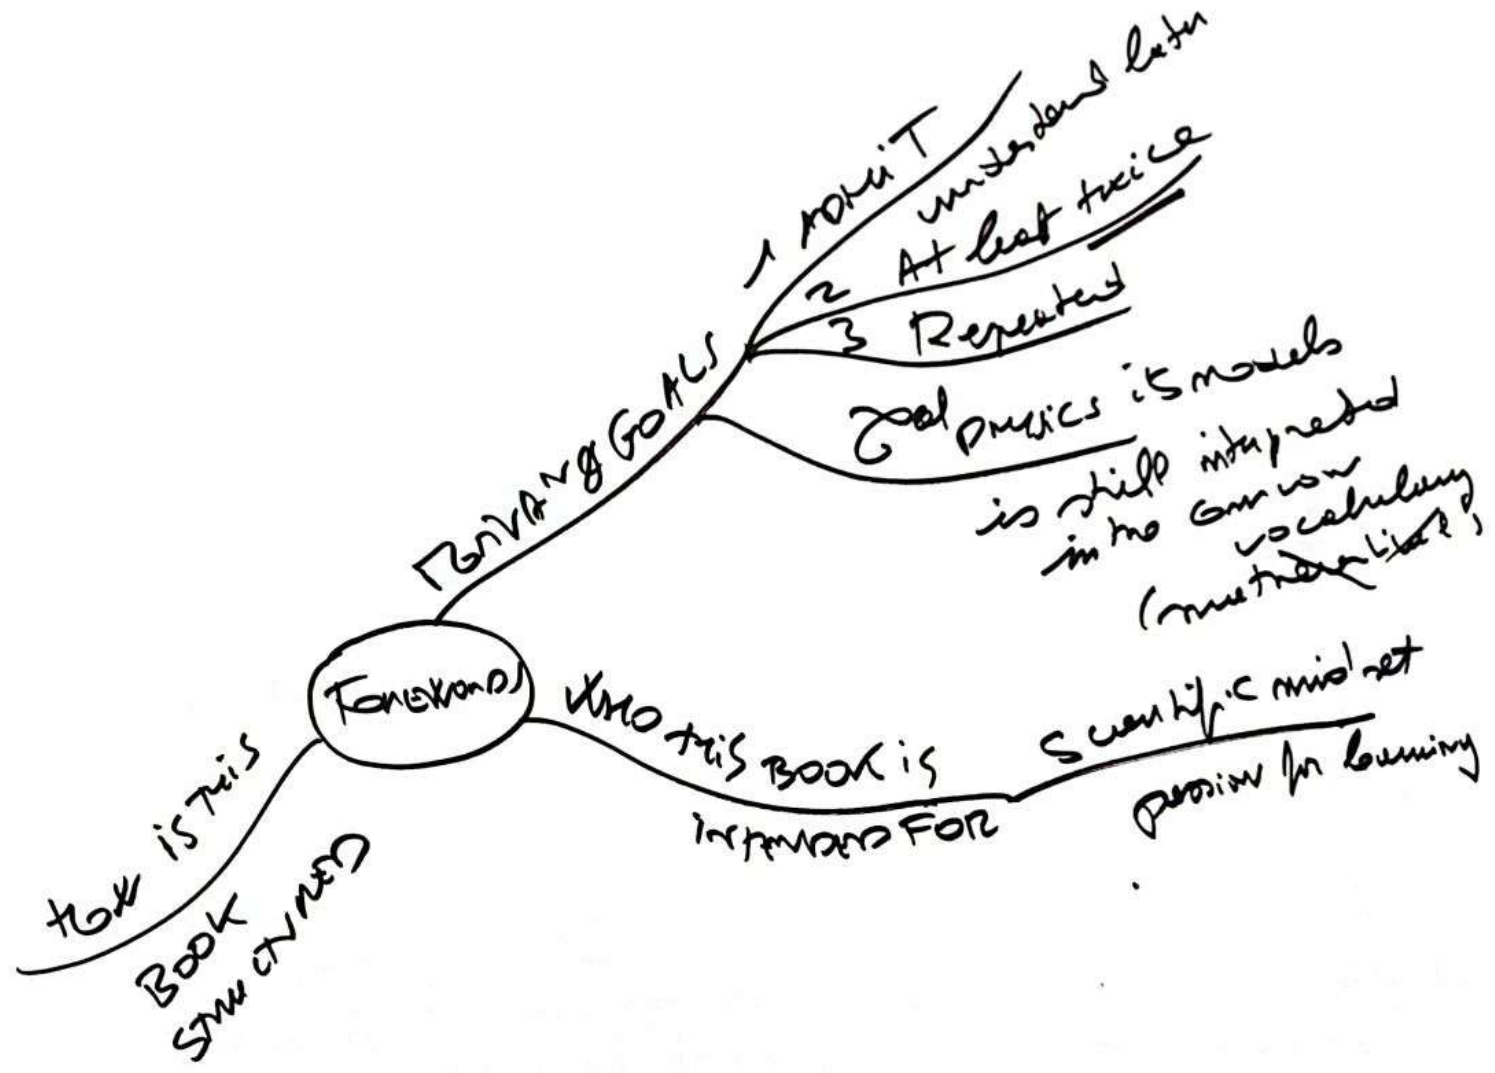 1 ADMiT
understand later
2 At least twice
3 Repeated
MOTiVAN & GOALS
goal physics its models
is still interpreted
in the common
vocabulary
FOREWORDS
WHO THiS BOOK iS
iNTENDED FOR
Scientific midset
passion for learning
HOW iS THiS
BOOK
STRUCTURED